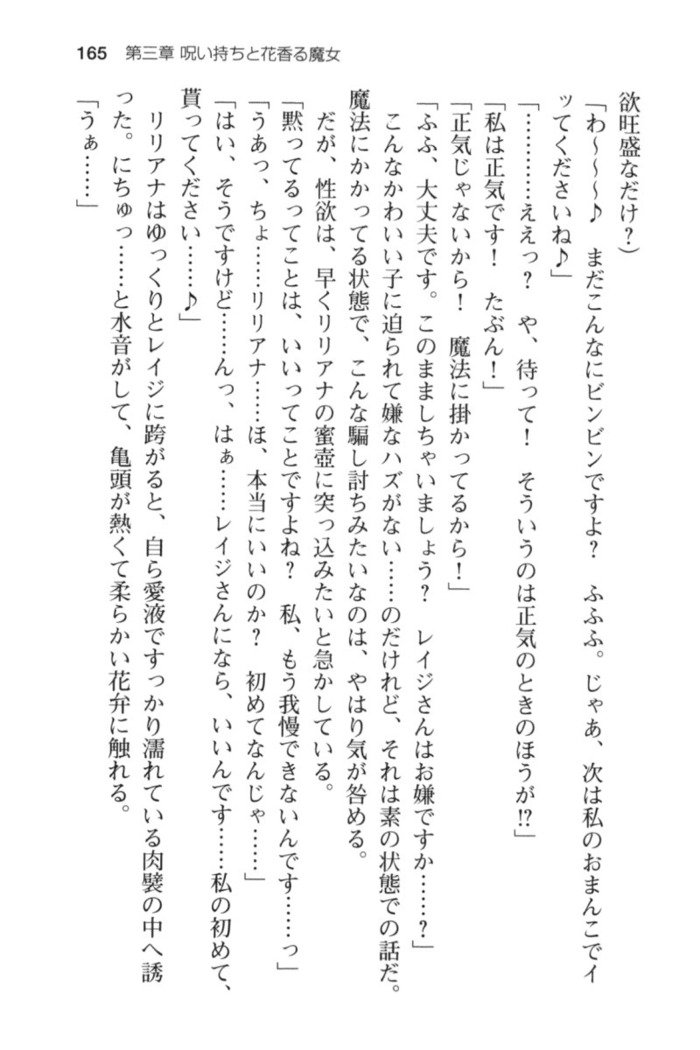 165 第三章 呪い持ちと花香る魔女
欲旺盛なだけ?)
「わ～～～♪　まだこんなにビンビンですよ?　ふふふ。じゃあ、次は私のおまんこでイ
ッてくださいね♪」
「…………ええっ?　や、待って!　そういうのは正気のときのほうが!?」
「私は正気です!　たぶん!」
「正気じゃないから!　魔法に掛かってるから!」
「ふふ、大丈夫です。このまましちゃいましょう?　レイジさんはお嫌ですか……?」
こんなかわいい子に迫られて嫌なハズがない……のだけれど、それは素の状態での話だ。
魔法にかかってる状態で、こんな騙し討ちみたいなのは、やはり気が咎める。
だが、性欲は、早くリリアナの蜜壺に突っ込みたいと急かしている。
「黙ってるってことは、いいってことですよね?　私、もう我慢できないんです……っ」
「うあっ、ちょ……リリアナ……ほ、本当にいいのか?　初めてなんじゃ……」
「はい、そうですけど……んっ、はぁ……レイジさんになら、いいんです……私の初めて、
貰ってください……♪」
リリアナはゆっくりとレイジに跨がると、自ら愛液ですっかり濡れている肉襞の中へ誘
った。にちゅっ……と水音がして、亀頭が熱くて柔らかい花弁に触れる。
「うぁ……」